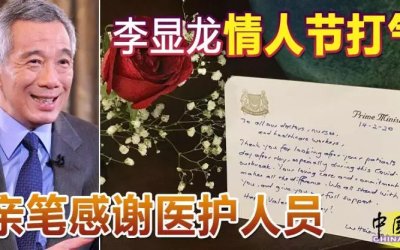 李显龙情人节打气
Prime Minister
14-2-20
To all our doctors, nurses,
and healthcare workers,
Thank you for looking after your patients
day after day, especially during this Covid-
outbreak. Your loving care and commitment
makes all the difference. We all stand with
you, and give you full support.
Happy Valentine's Day!
亲笔感谢医护人员
中国
CHINA